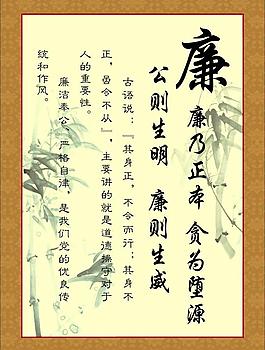 廉
廉乃正本 贪为堕源
公则生明 廉则生威
古语说:『其身正,不令而行;其身不
正,虽令不从』,主要讲的就是道德操守对于
人的重要性。
廉洁奉公、严格自律,是我们党的优良传
统和作风。